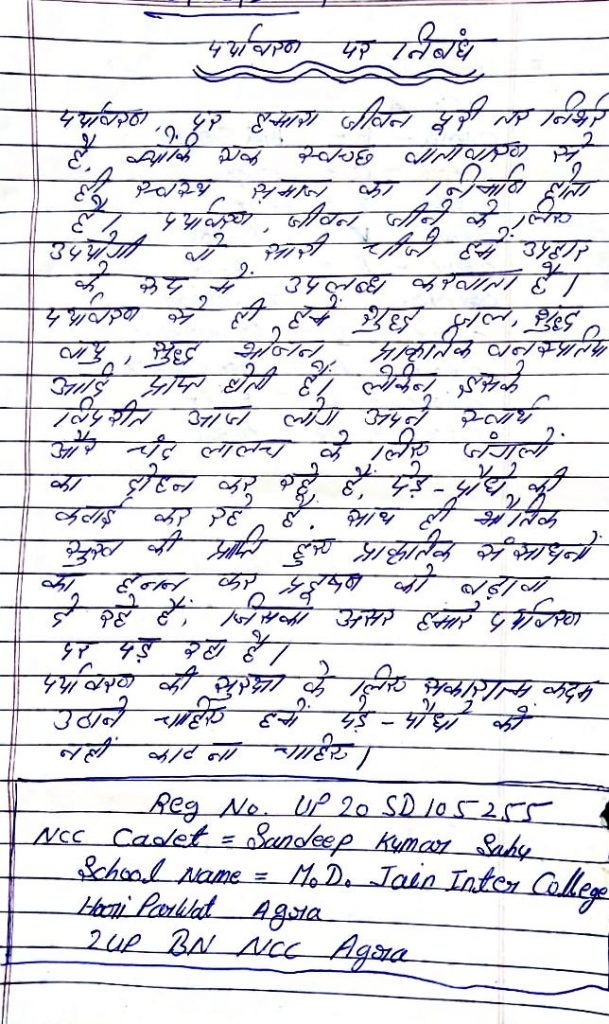 पर्यावरण पर निबंध
पर्यावरण, पर हमारा जीवन पूरी तरह निर्भर
है, क्योंकि एक स्वच्छ वातावरण से
ही स्वस्थ समाज का निर्माण होता
है। पर्यावरण, जीवन जीने के लिए
उपयोगी वो सारी चीजें हमें उपहार
के रूप में उपलब्ध करवाता है।
पर्यावरण से ही हमें शुद्ध जल, शुद्ध
वायु, शुद्ध भोजन, प्राकृतिक वनस्पतियां
आदि प्राप्त होती हैं। लेकिन इसके
विपरीत आज लोग अपने स्वार्थ
और चंद लालच के लिए जंगलों
का दोहन कर रहे हैं, पेड़-पौधे की
कटाई कर रहे हैं, साथ ही भौतिक
सुख की प्राप्ति हुए प्राकृतिक संसाधनों
का हनन कर प्रदूषण को बढ़ावा
दे रहे हैं, जिसका असर हमारे पर्यावरण
पर पड़ रहा है।
पर्यावरण की सुरक्षा के लिए कदम
उठाने चाहिए हमें पेड़-पौधों को
नहीं काटना चाहिए।
Reg No. UP20SD105255
NCC Cadet = Sandeep Kumar Sahu
School Name = M.D. Jain Inter College
Hari Parwat Agra
2UP BN NCC Agra